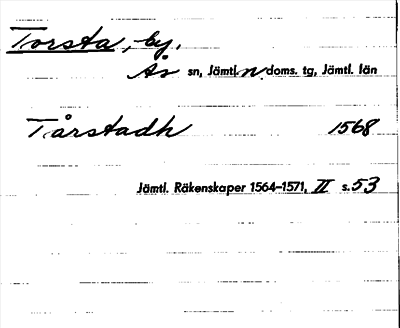 Torsta, by,
Ås sn, Jämtl. n doms. tg, Jämtl. län
Tårstadh 1568
Jämtl. Räkenskaper 1564-1571, II s. 53